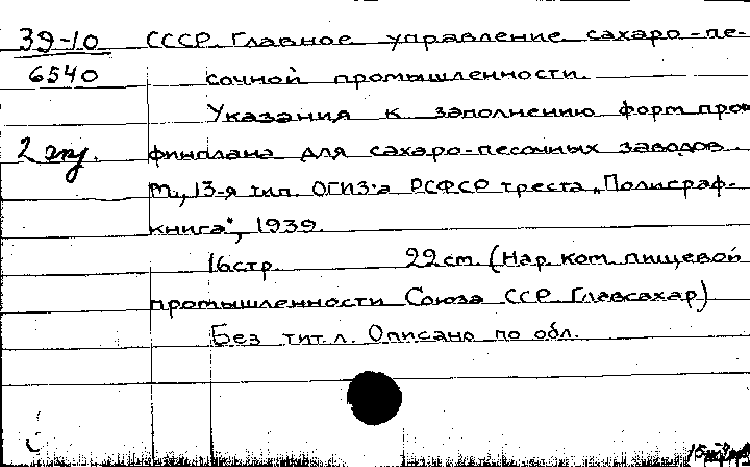 39-10 СССР. Главное управление сахаро-пе-
6540 сочной промышленности.
Указания к заполнению форм пром
2 экз. финплана для сахаро-песочных заводов.
М., 13-я тип. ОГИЗ'а РСФСР треста „Полиграф-
книга", 1939.
16стр. 22см. (Нар. ком. пищевой
промышленности Союза ССР. Главсахар)
Без тит. л. Описано по обл.